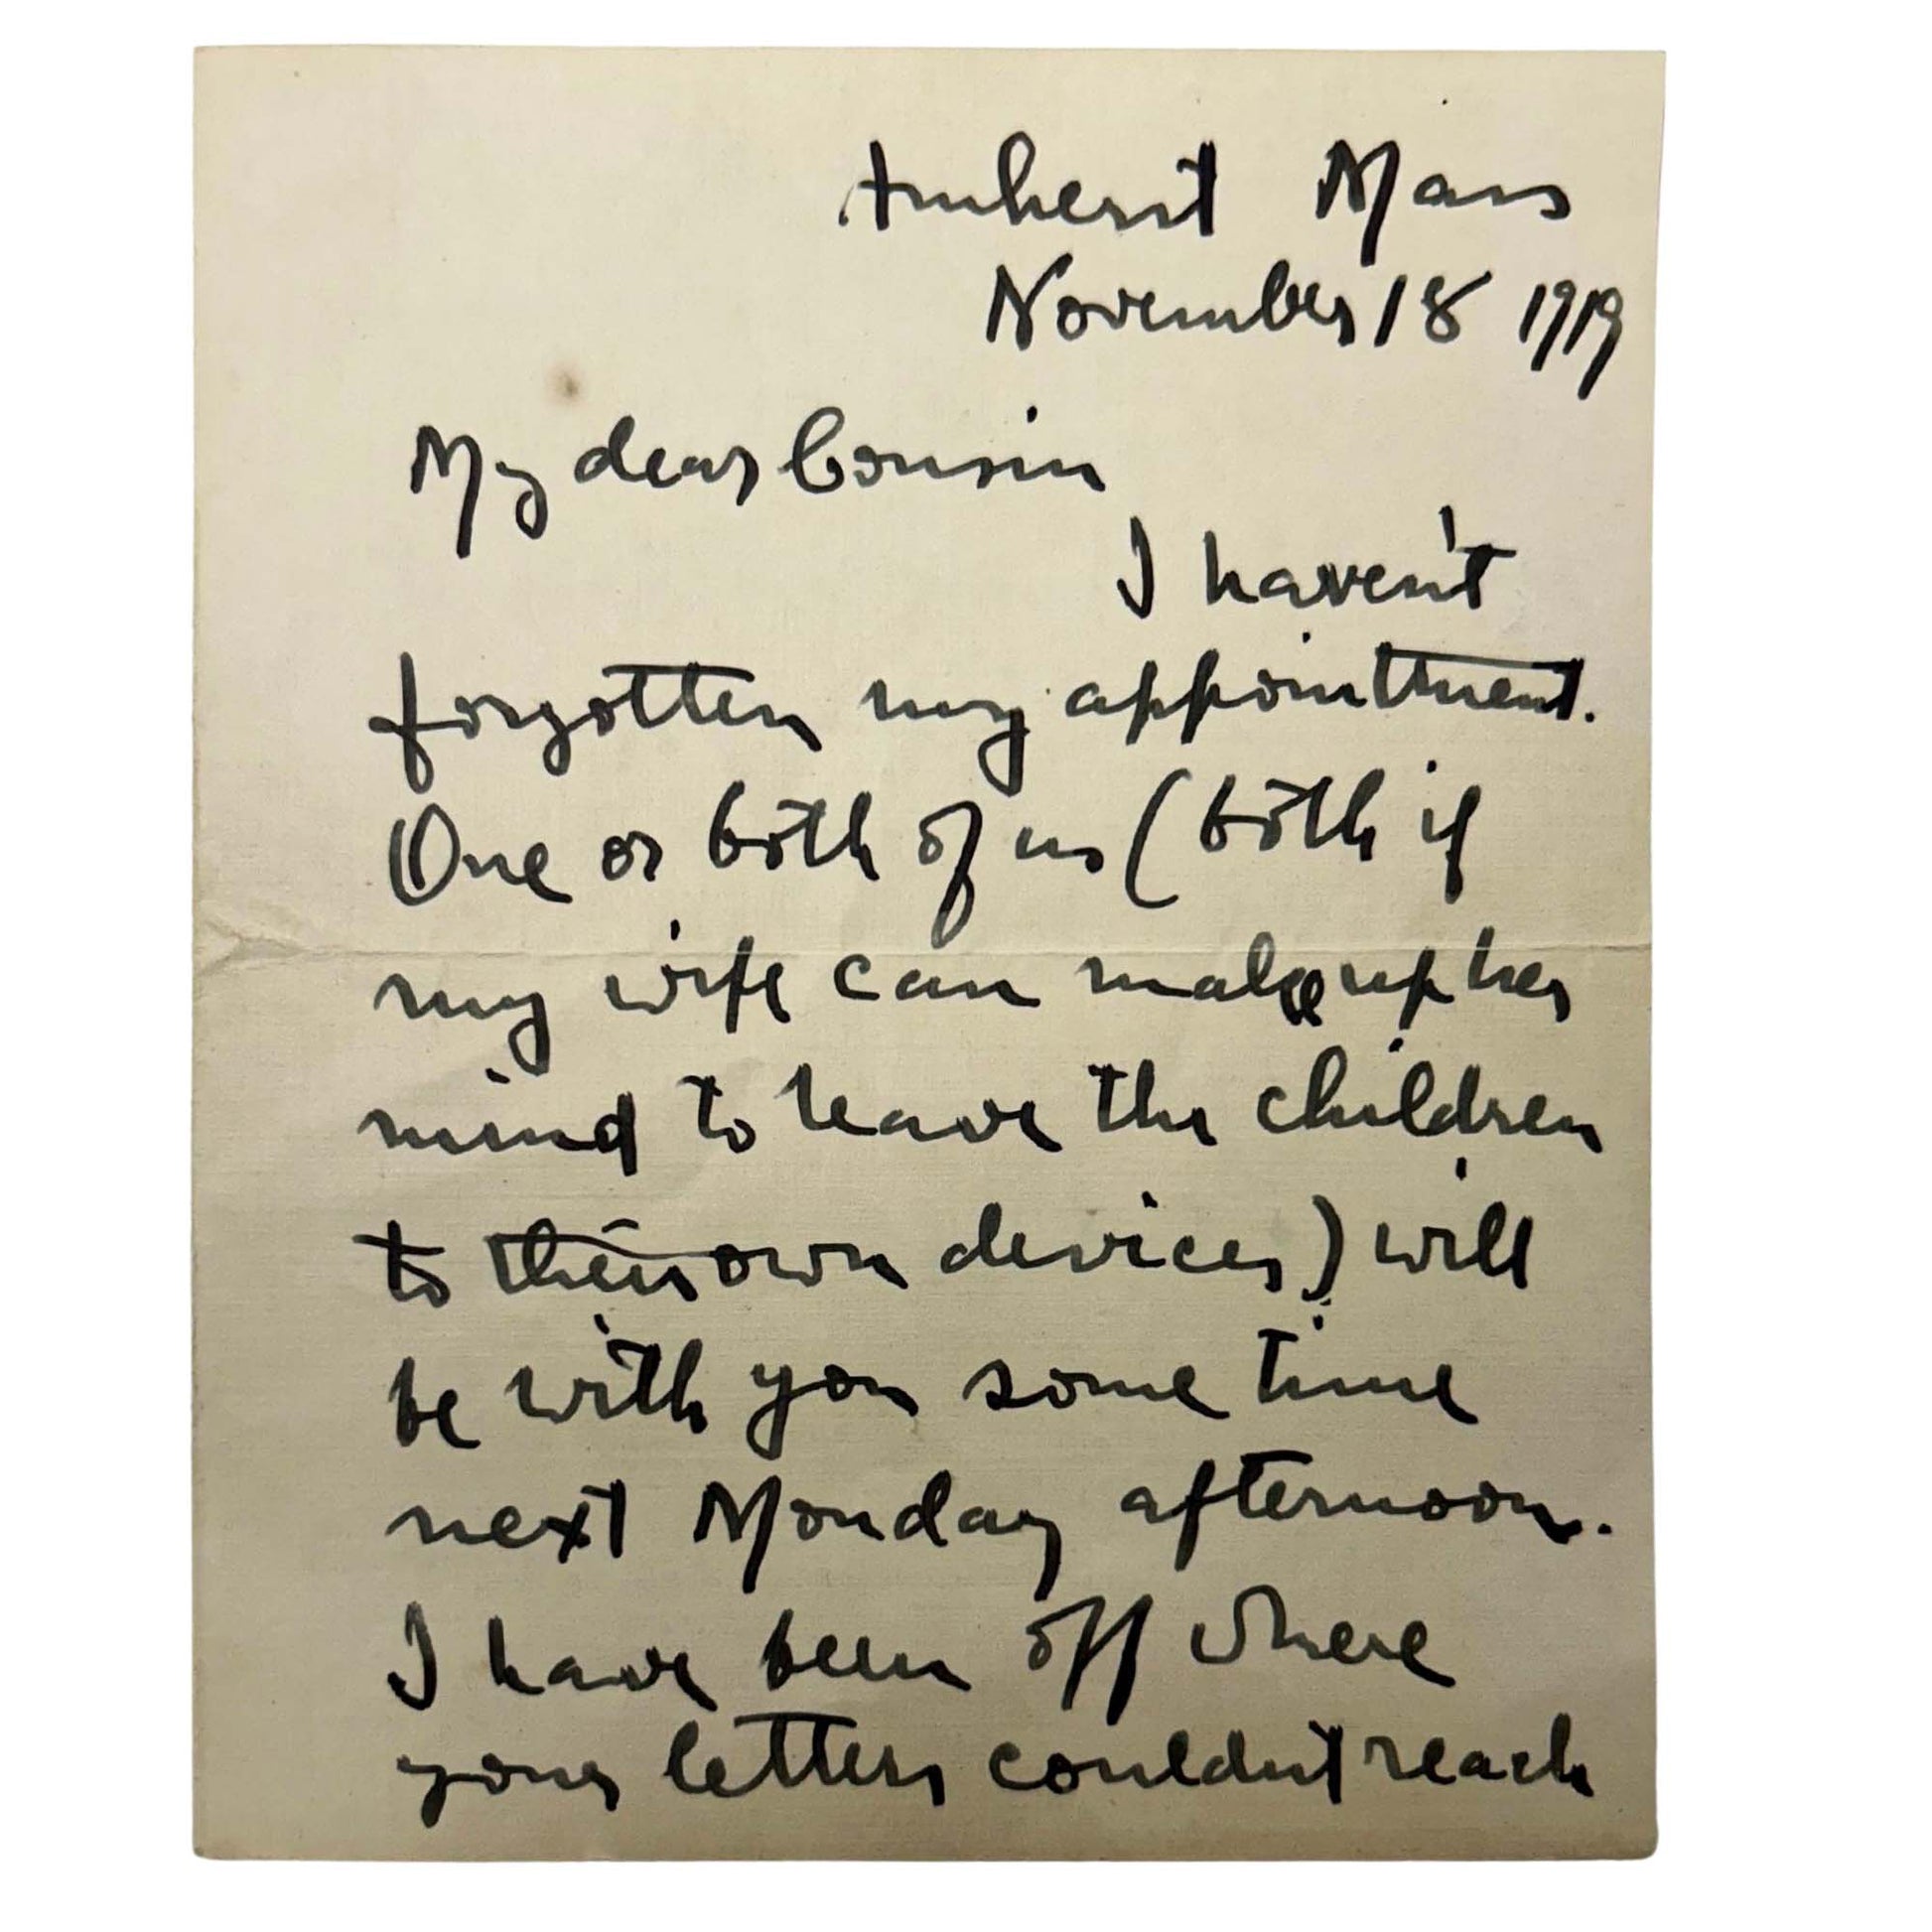 Amherst Mass
November 18 1919
My dear Cousin
I haven't
forgotten my appointment.
One or both of us (both if
my wife can make up her
mind to leave the children
to their own devices) will
be with you some time
next Monday afternoon.
I have been off where
your letters couldnt reach